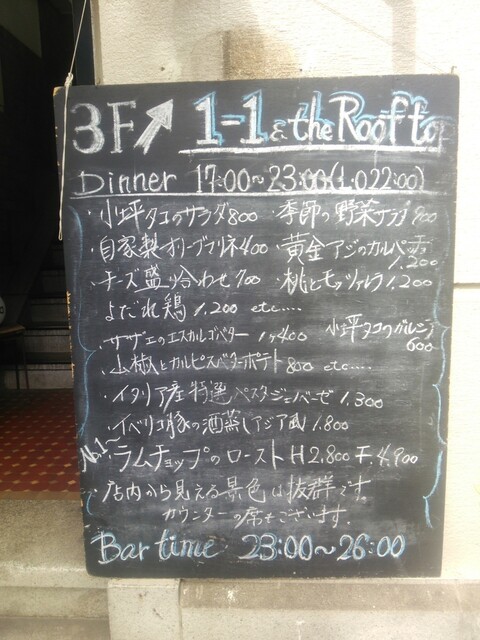 3F 1-1 & the Rooftop
Dinner 17:00~23:00(L.O22:00)
・小坪タコのサラダ800 ・季節の野菜サラダ900
・自家製オリーブマリネ400 ・黄金アジのカルパッチョ1,200
・チーズ盛り合わせ700 ・桃とモッツァレラ1,200
よだれ鶏1,200 etc....
・サザエのエスカルゴバター 小坪タコのガレシア600
・山椒とカルピスバターポテト800 etc....
・イタリア産特選ペスタジェノベーゼ1,300
・イベリコ豚の酒蒸しアジア風1,800
No.1~
・ラムチョップのローストH2,800 F.4,900
・店内から見える景色は抜群です。
カウンターの席もございます。
Bar time 23:00~26:00